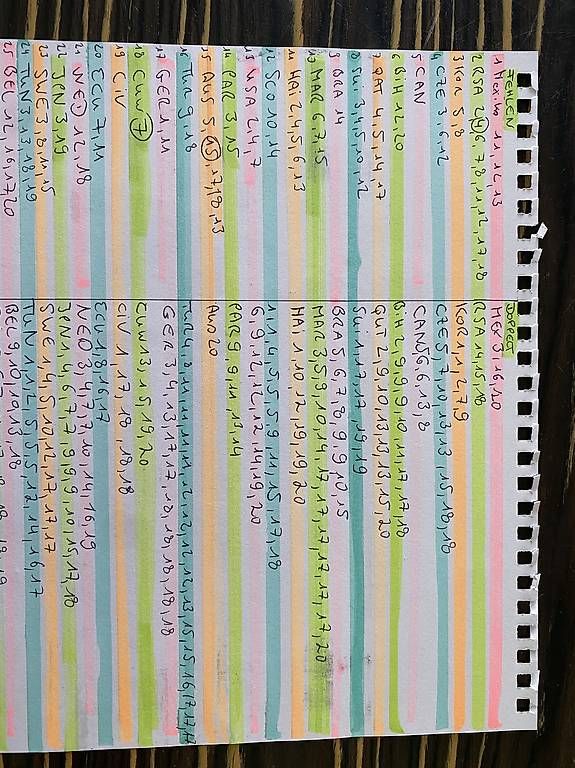 FEHLEN DOPPELT
1 Mexiko 11, 12, 13 MEX 3, 16, 20
2 RSA 2, 4, 6, 7, 8, 11, 12, 17, 18 RSA 14, 15, 18
3 Kor 5, 8 KOR 1, 1, 2, 7, 9
4 CZE 3, 6, 12 CZE 5, 7, 10, 13, 13, 15, 18, 18
5 CAN CAN 5, 6, 6, 13, 8
6 B.H 12, 20 B.H 2, 9, 9, 9, 10, 11, 17, 17, 18
7 QAT 4, 5, 14, 17 QAT 2, 9, 10, 13, 13, 13, 15, 20
8 Sui 3, 4, 5, 10, 12 Sui 1, 17, 17, 19, 19
9 BRA 14 BRA 5, 6, 7, 8, 9, 9, 10, 15
10 MAR 6, 7, 15 MAR 3, 5, 9, 10, 14, 17, 17, 17, 17, 17, 20
11 HAI 2, 4, 5, 6, 13 HAI 1, 10, 12, 19, 19, 20
12 SCO 10, 14 1, 1, 4, 5, 5, 5, 9, 11, 15, 17, 18
13 USA 2, 4, 7 6, 9, 12, 12, 12, 14, 19, 20
14 PAR 3, 15 PAR 9, 9, 11, 13, 14
15 AUS 5, 15, 17, 18, 13 AUS 20
16 Tur 9, 18
17 GER 1, 11 GER 3, 4, 13, 17, 17, 18, 18, 18, 18
18 CUW 7 CUW 13, 15, 19, 20
19 CIV CIV 1, 17, 18, 18, 18
20 ECU 7, 11 ECU 1, 8, 16, 17
21 NED 12, 18 NED 3, 4, 7, 7, 10, 14, 16, 19
22 JPN 3, 19 JPN 1, 4, 6, 7, 7, 9, 9, 9, 10, 15, 17, 18
23 SWE 3, 8, 11, 15 SWE 1, 4, 5, 10, 12, 17, 17, 17
24 TUN 3, 13, 18, 19 TUN 1, 12, 5, 5, 5, 12, 14, 16, 17
25 BEL 12, 16, 17, 20 BEL 9, 10, 14, 17, 18